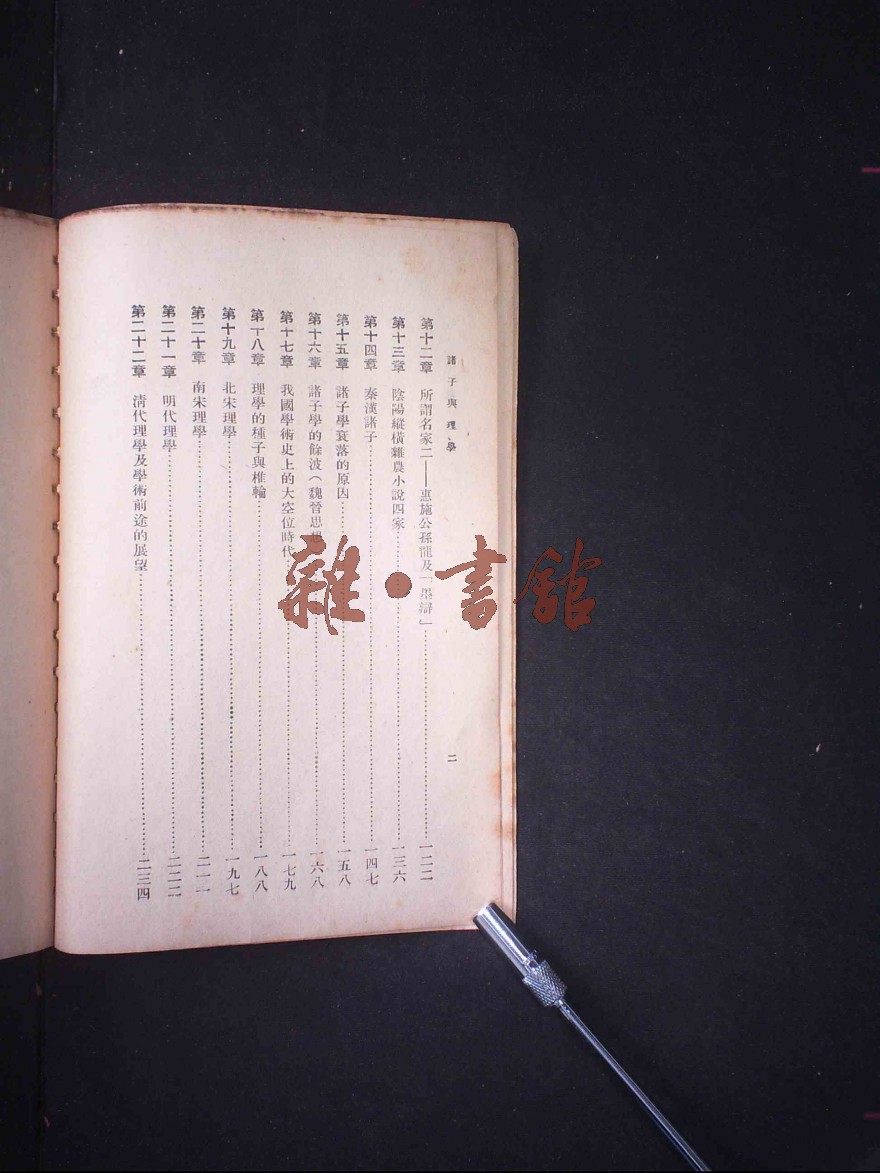 諸子與理學
第十二章 所謂名家二——惠施公孫龍及「墨辯」……一二二
第十三章 陰陽縱橫雜農小說四家……一三六
第十四章 秦漢諸子……一四七
第十五章 諸子學衰落的原因……一五八
第十六章 諸子學的餘波(魏晉思想……一六八
第十七章 我國學術史上的大空位時代……一七九
第十八章 理學的種子與椎輪……一八八
第十九章 北宋理學……一九七
第二十章 南宋理學……二一一
第二十一章 明代理學……二二二
第二十二章 淸代理學及學術前途的展望……二三四
二
雜·書館